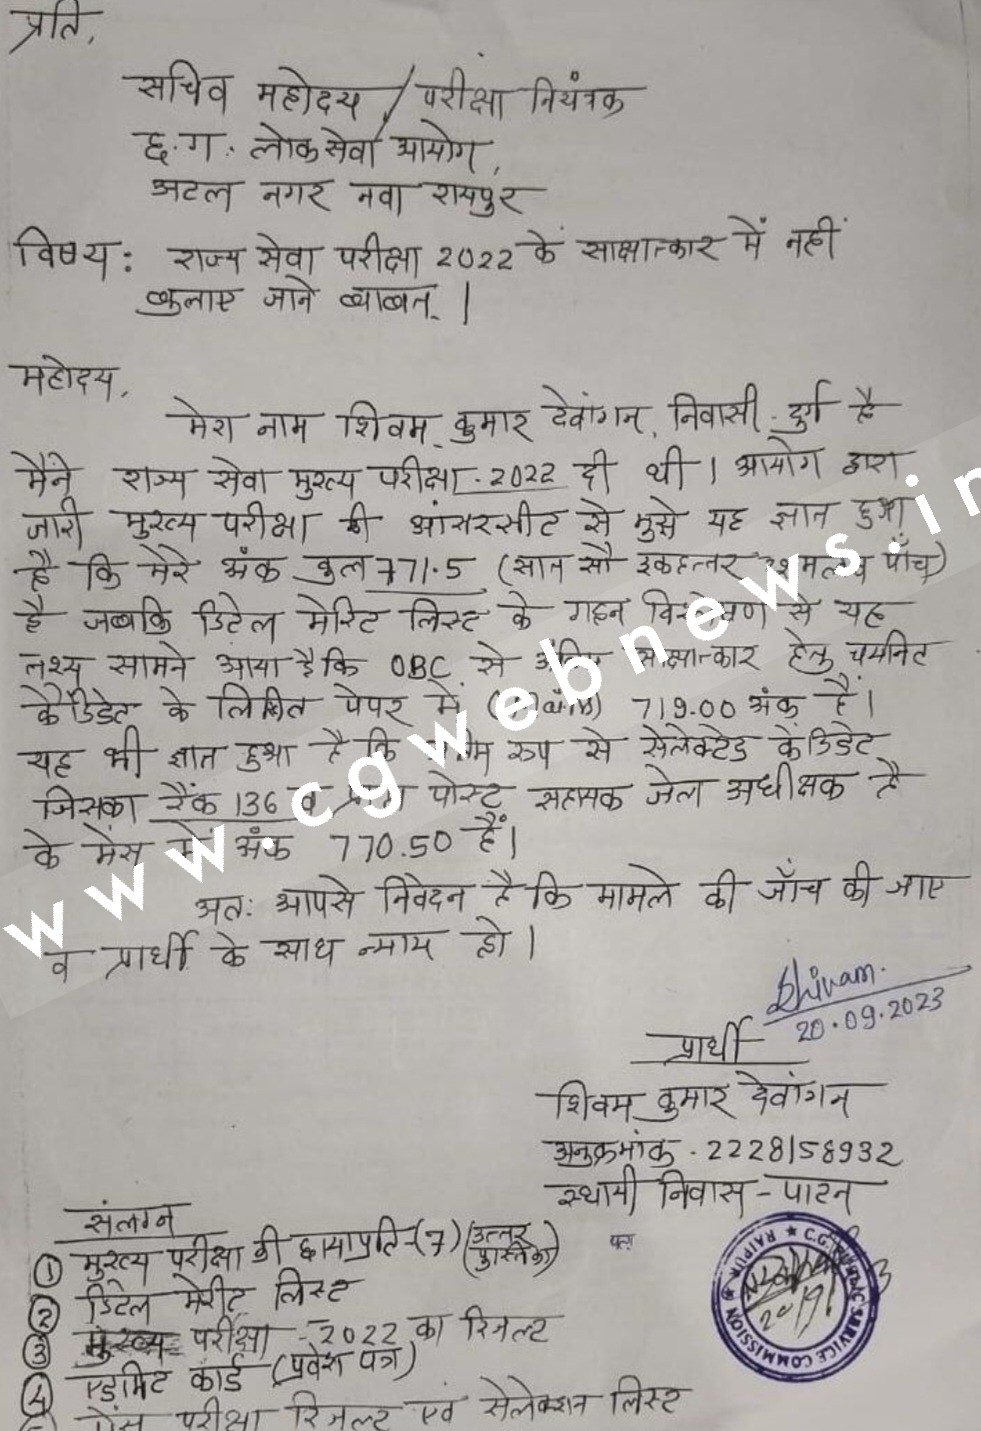 प्रति,
सचिव महोदय / परीक्षा नियंत्रक
छ.ग. लोकसेवा आयोग,
अटल नगर नवा रायपुर
विषय: राज्य सेवा परीक्षा 2022 के साक्षात्कार में नहीं
बुलाए जाने बाबत् |
महोदय,
मेरा नाम शिवम् कुमार देवांगन, निवासी - दुर्ग है
मैंने राज्य सेवा मुख्य परीक्षा - 2022 दी थी | आयोग द्वारा
जारी मुख्य परीक्षा की आंसरसीट से मुझे यह ज्ञात हुआ
है कि मेरे अंक कुल 771.5 (सात सौ इकहत्तर दशमलव पाँच)
है जबकि डिटेल मेरिट लिस्ट के गहन विश्लेषण से यह
तथ्य सामने आया है कि OBC से अंतिम साक्षात्कार हेतु चयनित
कैंडिडेट के लिखित पेपर में (Mains) 719.00 अंक हैं |
यह भी ज्ञात हुआ है कि रूप से सेलेक्टेड कैंडिडेट
जिसका रैंक 136 व प्राप्त पोस्ट सहायक जेल अधीक्षक है
के मेंस में अंक 770.50 हैं |
अतः आपसे निवेदन है कि मामले की जाँच की जाए
व प्रार्थी के साथ न्याय हो |
www.cgwebnews.in
Shivam.
20.09.2023
प्रार्थी
शिवम् कुमार देवांगन
अनुक्रमांक - 2228158932
स्थायी निवास - पाटन
संलग्न
① मुख्य परीक्षा की छायाप्रति - (7) (उत्तर पुस्तिका)
② डिटेल मेरीट लिस्ट
③ मुख्य परीक्षा - 2022 का रिजल्ट
④ एडमिट कार्ड (प्रवेश पत्र)
मेंस परीक्षा रिजल्ट एवं सेलेक्शन लिस्ट
C.G. PUBLIC SERVICE COMMISSION ★ RAIPUR ★